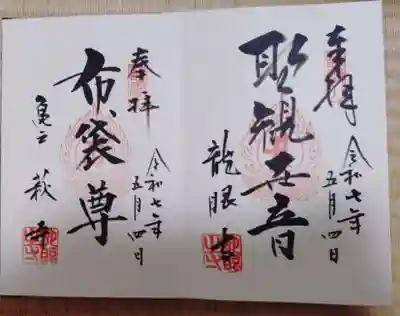 奉拝
聖観世音
龍眼寺
令和七年
五月四日
奉拝
布袋尊
亀戸 萩寺
令和七年
五月四日